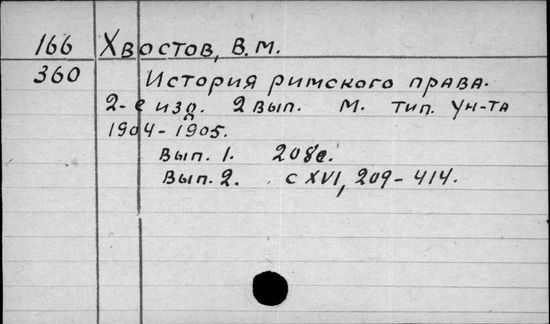 166 Хвостов, В.М.
360 История римского права.
2-е изд. 2 вып. М. тип. Ун-та
1904-1905.
Вып. 1. 208с.
Вып. 2. с XVI, 209-414.